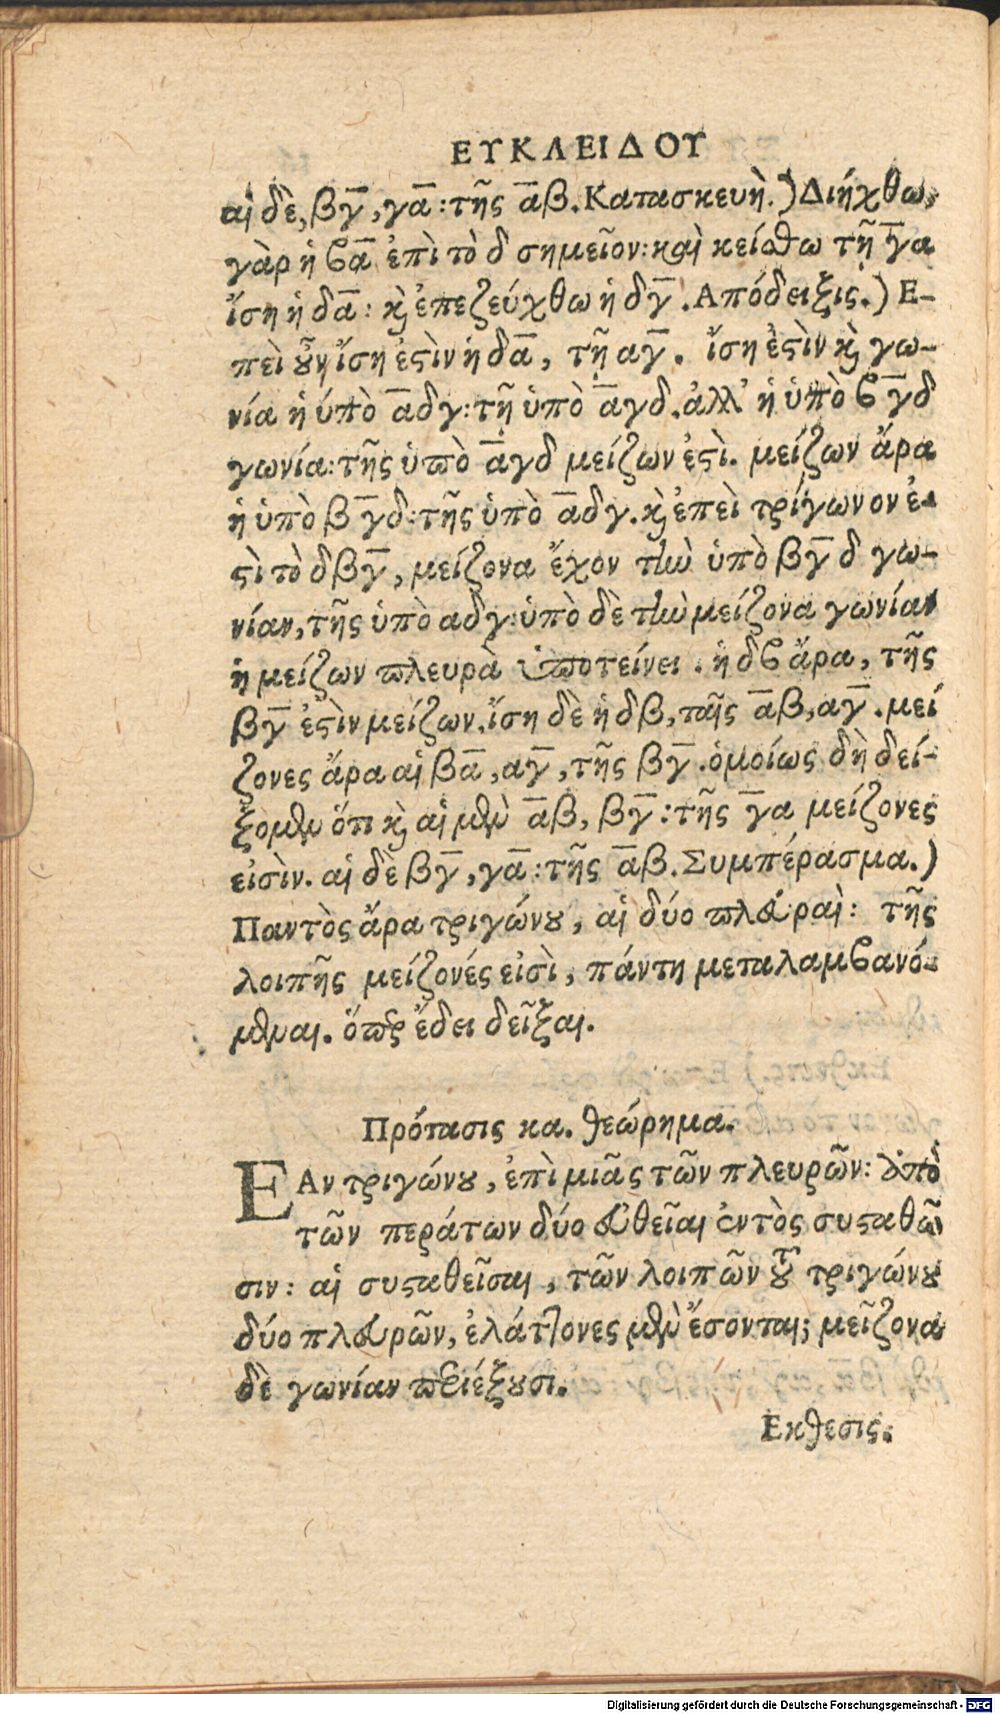 ΕΥΚΛΕΙΔΟΥ
αἱ δὲ, βγ̅, γα̅: τῆς α̅β. Κατασκευὴ.) Διήχθω
γὰρ ἡ βα̅ ἐπὶ τὸ δ σημεῖον: καὶ κείσθω τῇ γ̅α
ἴση ἡ δα̅: κ̀ ἐπεζεύχθω ἡ δγ̅. Απόδειξις.) Ε-
πεὶ οὖν ἴση ἐστὶν ἡ δα̅, τῇ αγ̅. ἴση ἐστὶν κ̀ γω-
νία ἡ ὑπὸ α̅δγ: τῇ ὑπὸ α̅γδ. ἀλλ' ἡ ὑπὸ βγ̅δ
γωνία: τῆς ὑπὸ α̅γδ μείζων ἐστὶ. μείζων ἄρα
ἡ ὑπὸ βγ̅δ: τῆς ὑπὸ α̅δγ. κ̀ ἐπεὶ τρίγωνον ἐ-
στὶ τὸ δβγ̅, μείζονα ἔχον τὴν ὑπὸ βγ̅δ γω-
νίαν, τῆς ὑπὸ αδγ: ὑπὸ δὲ τὴν μείζονα γωνίαν
ἡ μείζων πλευρὰ ὑποτείνει. ἡ δβ ἄρα, τῆς
βγ̅ ἐστὶν μείζων. ἴση δὲ ἡ δβ, ταῖς α̅β, αγ̅. μεί
ζονες ἄρα αἱ βα̅, αγ̅, τῆς βγ̅. ὁμοίως δὴ δεί-
ξομεν ὅτι κ̀ αἱ μὲν α̅β, βγ̅: τῆς γ̅α μείζονες
εἰσὶν. αἱ δὲ βγ̅, γα̅: τῆς α̅β. Συμπέρασμα.)
Παντὸς ἄρα τριγώνου, αἱ δύο πλευραὶ: τῆς
λοιπῆς μείζονές εἰσὶ, πάντη μεταλαμβανό-
μεναι. ὅπερ ἔδει δεῖξαι.
Πρότασις κα. θεώρημα.
ΕΑν τριγώνου, ἐπὶ μιᾶς τῶν πλευρῶν: ἀπὸ
τῶν περάτων δύο εὐθεῖαι ἐντὸς συσταθῶ
σιν: αἱ συσταθεῖσαι, τῶν λοιπῶν τοῦ τριγώνου
δύο πλευρῶν, ἐλάττονες μὲν ἔσονται; μεῖζονα
δὲ γωνίαν περιέξουσι.
Εκθεσις.
Digitalisierung gefördert durch die Deutsche Forschungsgemeinschaft - DFG